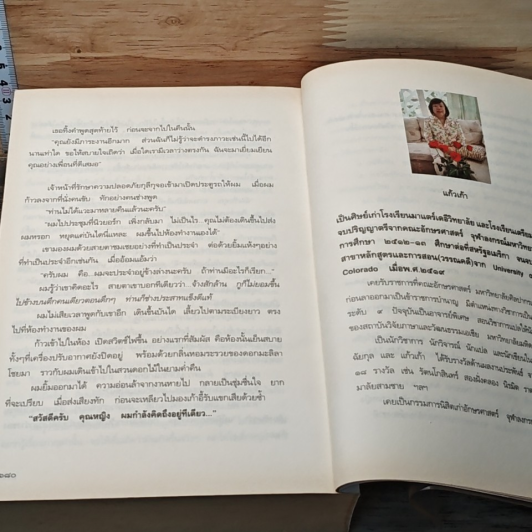 เธอทิ้งคำพูดสุดท้ายไว้ ก่อนจะจากไปในคืนนั้น
"คุณยังมีภาระงานอีกมาก ส่วนฉันก็ไม่รู้ว่าจะดำรงภาวะเช่นนี้ไปได้อีก
นานเท่าใด ขอให้สบายใจเถิดว่า เมื่อใดเรามีเวลาว่างตรงกัน ฉันจะมาเยี่ยมเยียน
คุณอย่างเพื่อนที่ดีเสมอ"
เจ้าหน้าที่รักษาความปลอดภัยกุลีกุจอเข้ามาเปิดประตูรถให้ผม เมื่อผม
ก้าวลงจากที่นั่งคนขับ ทักอย่างคนช่างพูด
"ท่านไม่ได้แวะมาหลายคืนแล้วนะครับ"
"ผมไปประชุมที่นิวยอร์ก เพิ่งกลับมา ไม่เป็นไร คุณไม่ต้องเดินขึ้นไปส่ง
ผมหรอก หยุดแค่บันไดนี่แหละ ผมขึ้นไปที่ห้องทำงานเองได้"
เขามองผมด้วยสายตาชมเชยอย่างที่ทำเป็นประจำ ต่อด้วยยิ้มแห้งๆอย่าง
ที่ทำเป็นประจำอีกเช่นกัน เมื่ออ้อมแอ้มว่า
"ครับผม คือ...ผมจะประจำอยู่ข้างล่างนะครับ ถ้าท่านมีอะไรก็เรียก..."
ผมรู้ว่าเขาคิดอะไร สายตาเขาบอกทีเดียวว่า อ้างสักล้าน กูก็ไม่ยอมขึ้น
ไปข้างบนตึกคนเดียวตอนดึกๆ ท่านก็ช่างประสาทแข็งดีแท้
ผมไม่เสียเวลาพูดกับเขาอีก เดินขึ้นบันได เลี้ยวไปตามระเบียงยาว ตรง
ไปที่ห้องทำงานของผม
ก้าวเข้าไปในห้อง เปิดสวิตช์ไฟขึ้น อย่างแรกที่สัมผัส คือห้องนั้นเย็นสบาย
ทั้งๆที่เครื่องปรับอากาศยังปิดอยู่ พร้อมด้วยกลิ่นหอมระรวยของดอกมะลิลา
โชยมา ราวกับผมเดินเข้าไปในสวนดอกไม้ในยามค่ำคืน
ผมยิ้มออกมาได้ ความอ่อนล้าจากงานหายไป กลายเป็นชุ่มชื่นใจ ยาก
ที่จะเปรียบ เมื่อส่งเสียงทัก ก่อนจะเหลียวไปมองเก้าอี้รับแขกเสียด้วยซ้ำ
"สวัสดีครับ คุณหญิง ผมกำลังคิดถึงอยู่ทีเดียว..."
๒๘๐
แก้วเก้า
เป็นศิษย์เก่าโรงเรียนมาแตร์เดอีวิทยาลัย และโรงเรียนเตรียม
จบปริญญาตรีจากคณะอักษรศาสตร์ จุฬาลงกรณ์มหาวิทย
การศึกษา ๒๕๑๒-๑๓ ศึกษาต่อที่สหรัฐอเมริกา จนจบ
สาขาหลักสูตรและการสอน(วรรณคดี)จาก University
Colorado เมื่อพ.ศ.๒๕๑๙
เคยรับราชการที่คณะอักษรศาสตร์ มหาวิทยาลัยศิลปา
ก่อนลาออกมาเป็นข้าราชการบำนาญ มีตำแหน่งทางวิชาการเป็น
ระดับ ๙ ปัจจุบันเป็นอาจารย์พิเศษ สอนวิชาการแปลให้บั
ของสถาบันวิจัยภาษาและวัฒนธรรมเอเชีย มหาวิทยาลัยมหิด
เป็นนักวิชาการ นักวิจารณ์ นักแปล และนักเขียน
ฉัยกุล และ แก้วเก้า ได้รับรางวัลด้านผลงานประพันธ์
๑๘ รางวัล เช่น รัตนโกสินทร์ สองฝั่งคลอง นิรมิต
มาลัยสามชาย ฯลฯ
เคยเป็นกรรมการนิสิตเก่าอักษรศาสตร์ จุฬาลงกรณ